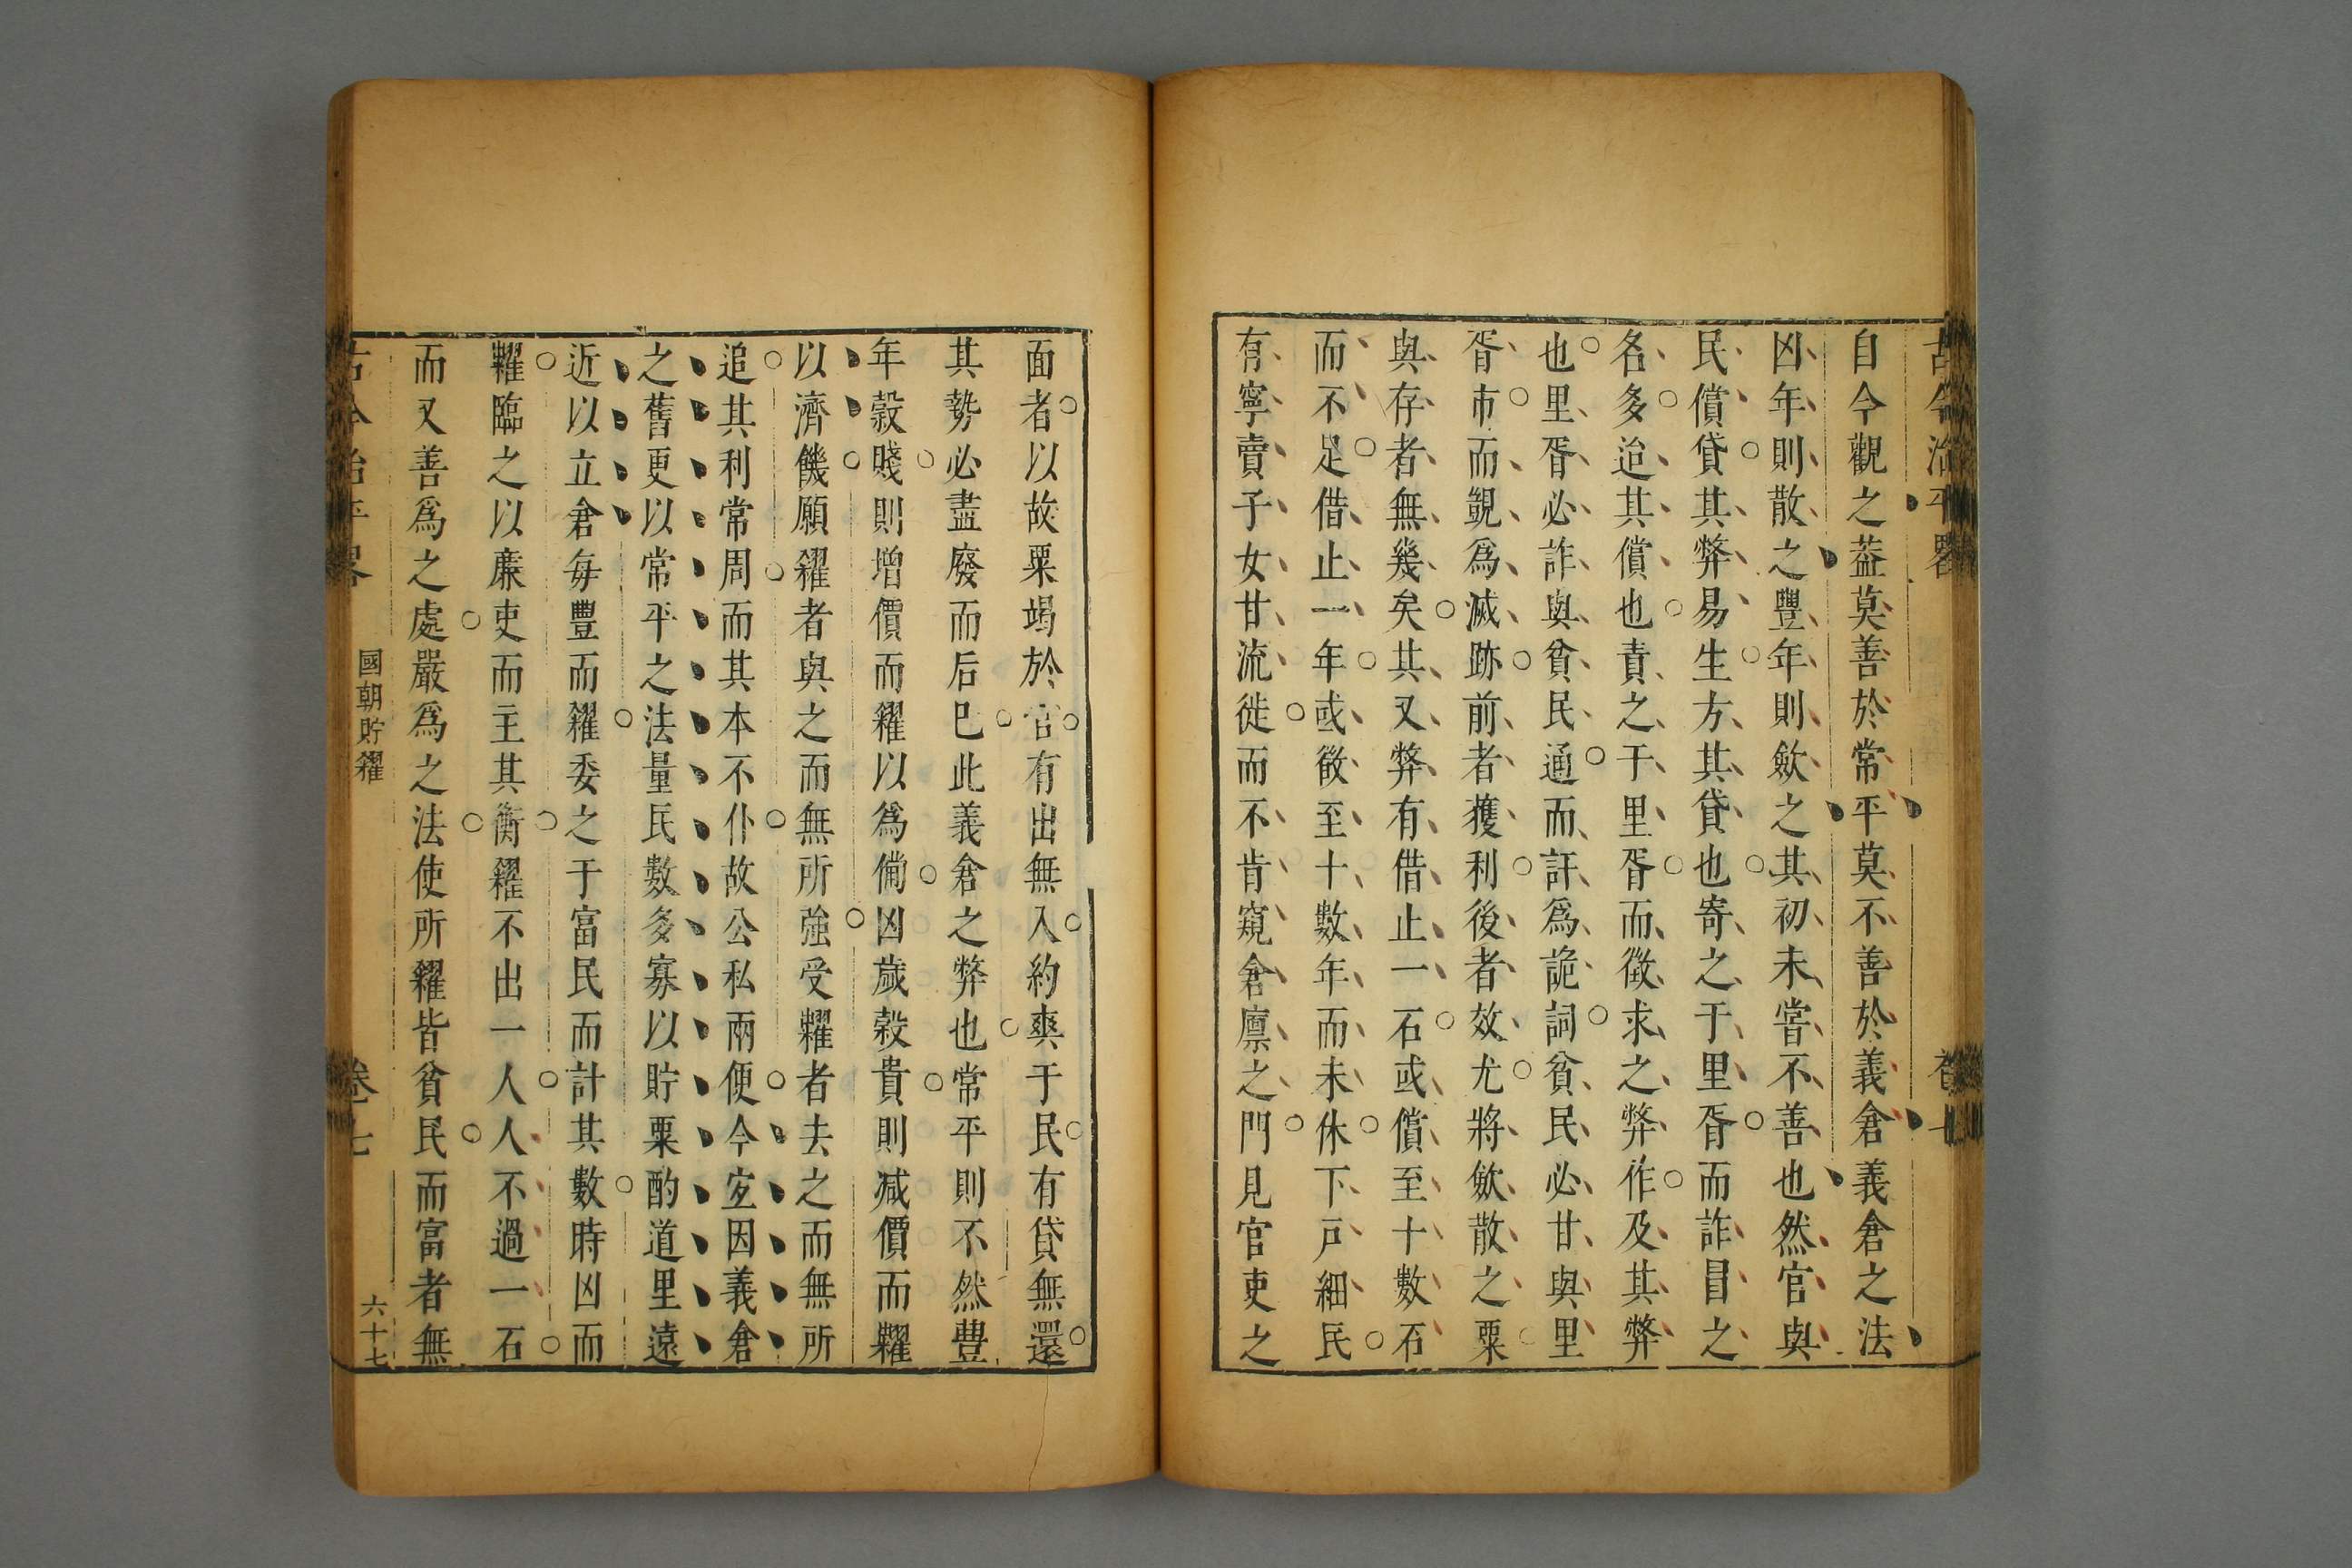 古今治平畧
卷七
自今觀之葢莫善於常平莫不善於義倉義倉之法
凶年則散之豐年則斂之其初未嘗不善也然官與
民償貸其弊易生方其貸也寄之于里胥而詐冒之
名多迨其償也責之于里胥而徵求之弊作及其弊
也里胥必詐與貧民通而託爲詭詞貧民必甘與里
胥市而覬爲滅跡前者獲利後者效尤將斂散之粟
與存者無幾矣其又弊有借止一石或償至十數石
而不足借止一年或徵至十數年而未休下戸細民
有寧賣子女甘流徙而不肯窺倉廪之門見官吏之
面者以故粟竭於官有出無入約爽于民有貸無還
其勢必盡廢而后已此義倉之弊也常平則不然豊
年穀賤則增價而糴以爲備凶歲穀貴則減價而糶
以濟饑願糴者與之而無所強受糶者去之而無所
追其利常周而其本不仆故公私兩便今宜因義倉
之舊更以常平之法量民數多寡以貯粟酌道里遠
近以立倉每豐而糴委之于富民而計其數時凶而
糶臨之以廉吏而主其衡糴不出一人人不過一石
而又善爲之處嚴爲之法使所糶皆貧民而富者無
古今治平畧
國朝貯糴
卷七
六十七